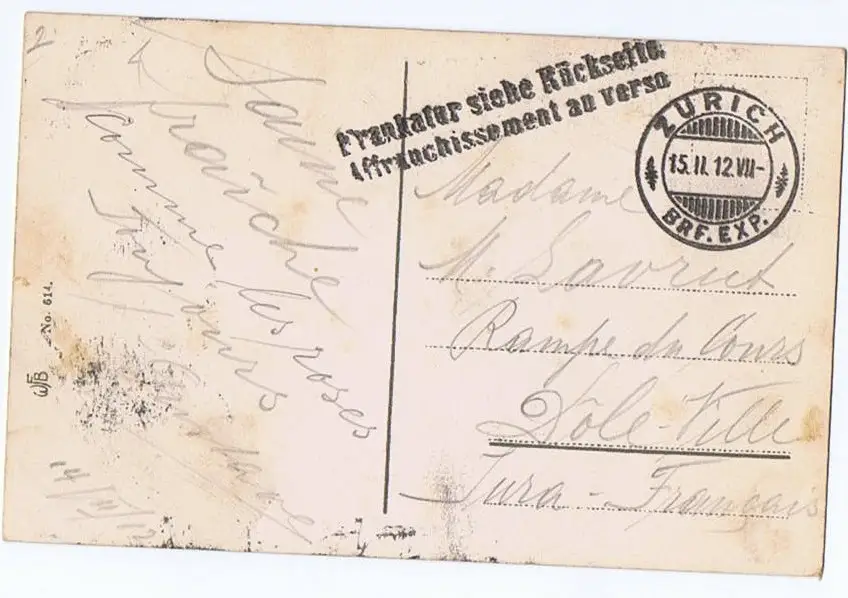 2
fraîche
comme les roses
toujours
14/II/12
No. 614.
WFB
Frankatur siehe Rückseite.
Affranchissement au verso
ZÜRICH
15.II.12.VII-
BRF. EXP.
Madame
M. Lavrut
Rampe du Cours
Dôle-Ville
Jura - Français